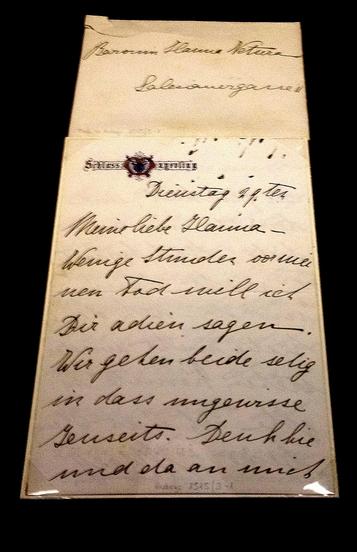 Baronin Hanna Vetsera
Salesianergasse 11
Schloss Mayerling
Dienstag 29ten
Meine liebe Hanna –
Wenige Stunden vor mei
nen Tod will ich
Dir adieu sagen.
Wir gehen beide selig
in dass ungewisse
Jenseits. Denk hie
und da an mich